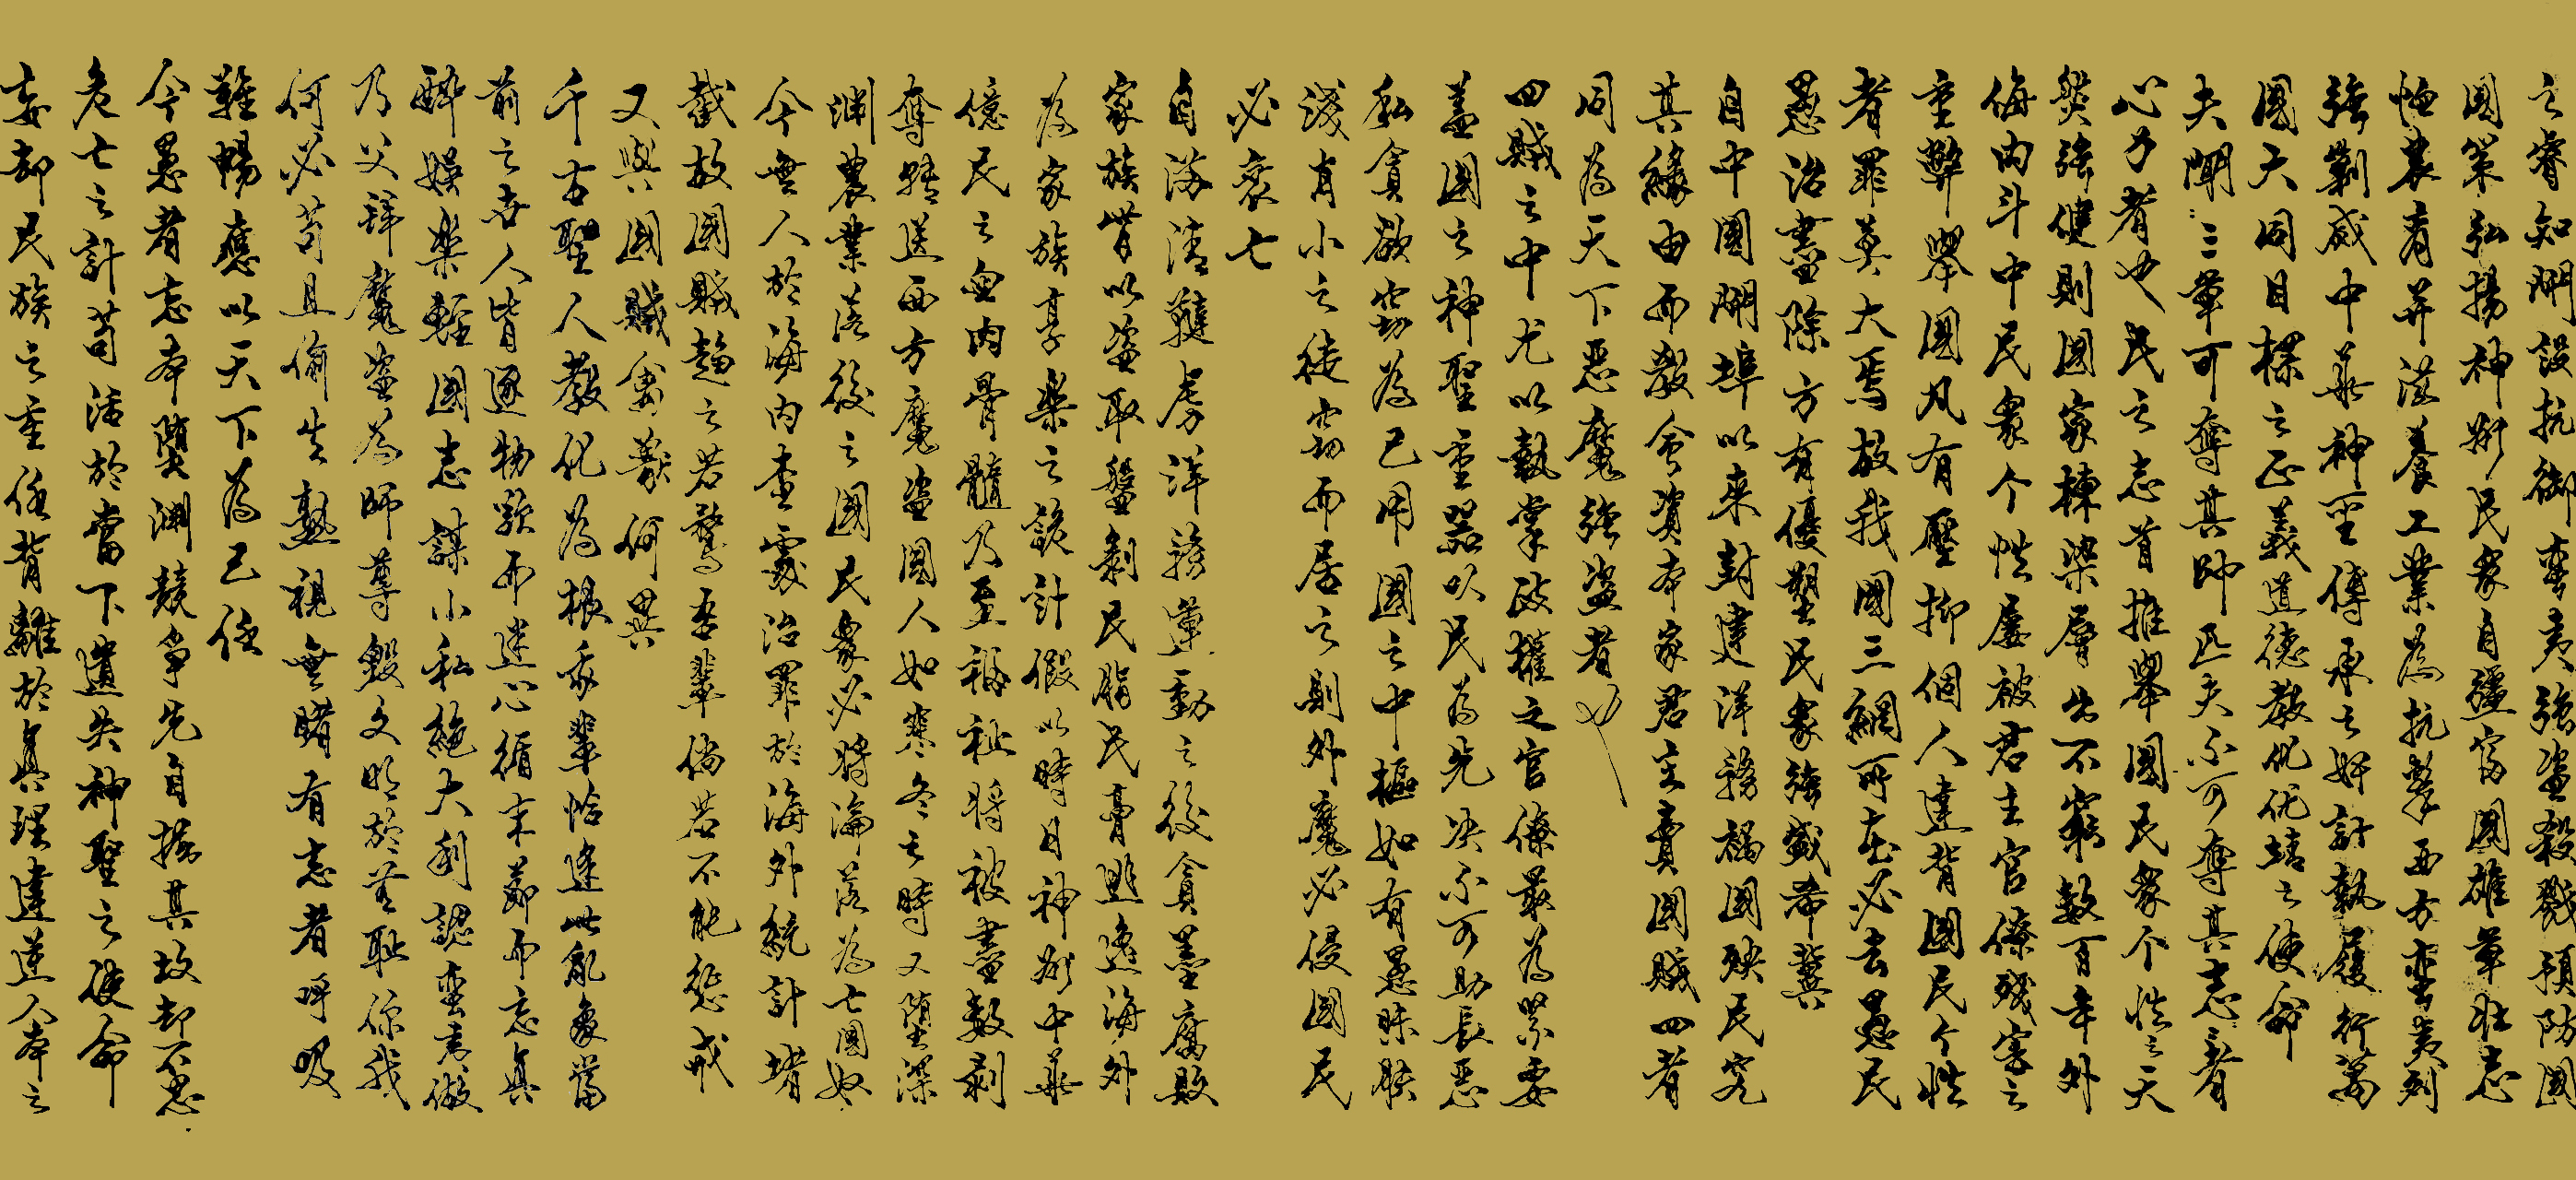 之睿知開設抗御蠻夷強盜殺戮預防國
國策弘揚神州民眾自強富國雄華壯志
恤農育并滋養工業為抗擊西方蠻夷列
強剿滅中華神聖傳承之奸計執履行萬
國大同目標之正義道德教化優靖之使命
夫聞三軍可奪其帥匹夫不可奪其志志者
心力者也民之志首推舉國民眾个性之天
然強健則國家棟樑層出不窮數百年外
侮內斗中民眾个性屢被君主官僚殘害之
重弊舉國凡有壓抑個人違背國民个性
者罪莫大焉故我國三綱所在必去愚民
愚治盡除方有優塑民眾強盛希冀
自中國開埠以來封建洋務禍國殃民究
其緣由而教會資本家君主賣國賊四者
同為天下惡魔強盜者也
四賊之中尤以執掌政權之官僚最為要
蓋國之神聖重器以民為先決不可助長惡
私貪欲竊為己用國之中樞如有愚昧膚
淺宵小之徒竊而居之則外魔必侵國民
必衰亡
自滿清韃虜洋務運動之後貪墨腐敗
家族皆以盜取盤剝民脂民膏逃逸海外
為家族享樂之詭計假以時日神州中華
億民之血肉骨髓乃至福祉將被盡數剝
奪轉送西方魔盜國人如寒冬之時又墮深
淵農業落後之國民眾必將淪落為亡國奴
今無人於海內查處治罪於海外統計堵
截故國賊趨之若鶩吾輩倘若不能懲戒
又與國賊禽獸何異
千古聖人教化為根吾輩恰逢此亂象當
前之世人皆逐物欲而迷心循末節而忘真
醉娛樂輕國志謀小私絕大利認蠻夷做
乃父拜魔盜為師尊毀文明於羞恥你我
何必苟且偷生熟視無睹有志者呼吸
難暢應以天下為己任
今愚者忘本墮淵競爭先自掘其故却不思
危亡之計苟活於當下遺失神聖之使命
妄却民族之重任背離於真理違逆人本之